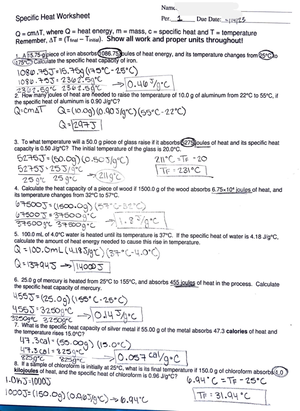 Name
Specific Heat Worksheet
Per. 1 Due Date:
Q = cm∆T, where Q = heat energy, m = mass, c = specific heat and T = temperature
Remember, ∆T = (Tfinal – Tinitial). Show all work and proper units throughout!
1. A 15.75-g piece of iron absorbs 1086.75 joules of heat energy, and its temperature changes from 25°C to
175°C. Calculate the specific heat capacity of iron.
1086.75J = 15.75g (175°C - 25°C)
1086.75J = 2362.5g°C
2362.5g°C 2362.5g°C → 0.46 J/g°C
2. How many joules of heat are needed to raise the temperature of 10.0 g of aluminum from 22°C to 55°C, if
the specific heat of aluminum is 0.90 J/g°C?
Q=cm∆T Q=(10.0g)(0.90J/g°C)(55°C-22°C)
Q=297J
3. To what temperature will a 50.0 g piece of glass raise if it absorbs 5275 joules of heat and its specific heat
capacity is 0.50 J/g°C? The initial temperature of the glass is 20.0°C.
5275J=(50.0g)(0.50J/g°C) 211°C = TF - 20
5275J = 25J/g°C TF = 231°C
25 g 25g°C → 211°C
4. Calculate the heat capacity of a piece of wood if 1500.0 g of the wood absorbs 6.75×10⁴ joules of heat, and
its temperature changes from 32°C to 57°C.
67500J=(1500.0g)(57°C-32°C)
67500J = 37500g°C
37500g°C 37500g°C → 1.8 J/g°C
5. 100.0 mL of 4.0°C water is heated until its temperature is 37°C. If the specific heat of water is 4.18 J/g°C,
calculate the amount of heat energy needed to cause this rise in temperature.
Q=100.0mL(4.18J/g°C)(37°C-4.0°C)
Q=13794J → 14000J
6. 25.0 g of mercury is heated from 25°C to 155°C, and absorbs 455 joules of heat in the process. Calculate
the specific heat capacity of mercury.
455J=(25.0g)(155°C-25°C)
455J = 3250g°C
3250g°C 3250g°C → 0.14 J/g°C
7. What is the specific heat capacity of silver metal if 55.00 g of the metal absorbs 47.3 calories of heat and
the temperature rises 15.0°C?
47.3cal = (55.00g)(15.0°C)
47.3cal = 825g°C
825g°C 825g°C → 0.057 cal/g°C
8. If a sample of chloroform is initially at 25°C, what is its final temperature if 150.0 g of chloroform absorbs 1.0
kilojoules of heat, and the specific heat of chloroform is 0.96 J/g°C?
1.0kJ=1000J 6.94°C = TF - 25°C
1000J=(150.0g)(0.96J/g°C) → 6.94°C TF = 31.94°C